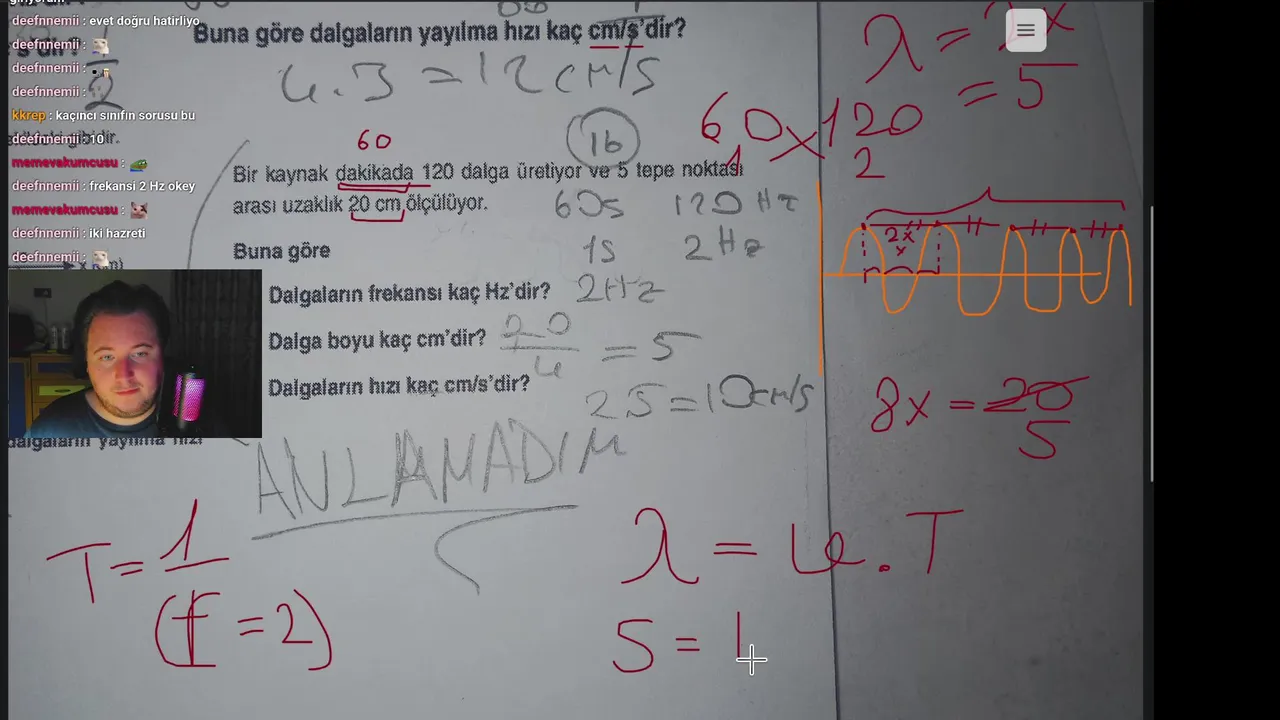 deefnnemii : evet doğru hatirliyo
deefnnemii :
deefnnemii :
deefnnemii :
kkrep : kaçıncı sınıfın sorusu bu
deefnnemii : 10
memevakumcusu :
deefnnemii : frekansi 2 Hz okey
memevakumcusu :
deefnnemii : iki hazreti
deefnnemii :
Buna göre dalgaların yayılma hızı kaç cm/s'dir?
4.3 = 12 cm/s
16
60
Bir kaynak dakikada 120 dalga üretiyor ve 5 tepe noktası
arası uzaklık 20 cm ölçülüyor.
60s 120 Hz
Buna göre
1s 2 Hz
Dalgaların frekansı kaç Hz'dir? 2Hz
Dalga boyu kaç cm'dir? 20/4 = 5
Dalgaların hızı kaç cm/s'dir? 2 5 = 10 cm/s
dalgaların yayılma hızı
ANLAMADIM
T = 1
(f = 2)
λ = 2x
= 5
60 x 120
1 2
2x
x
8x = 20
5
λ = v . T
5 =